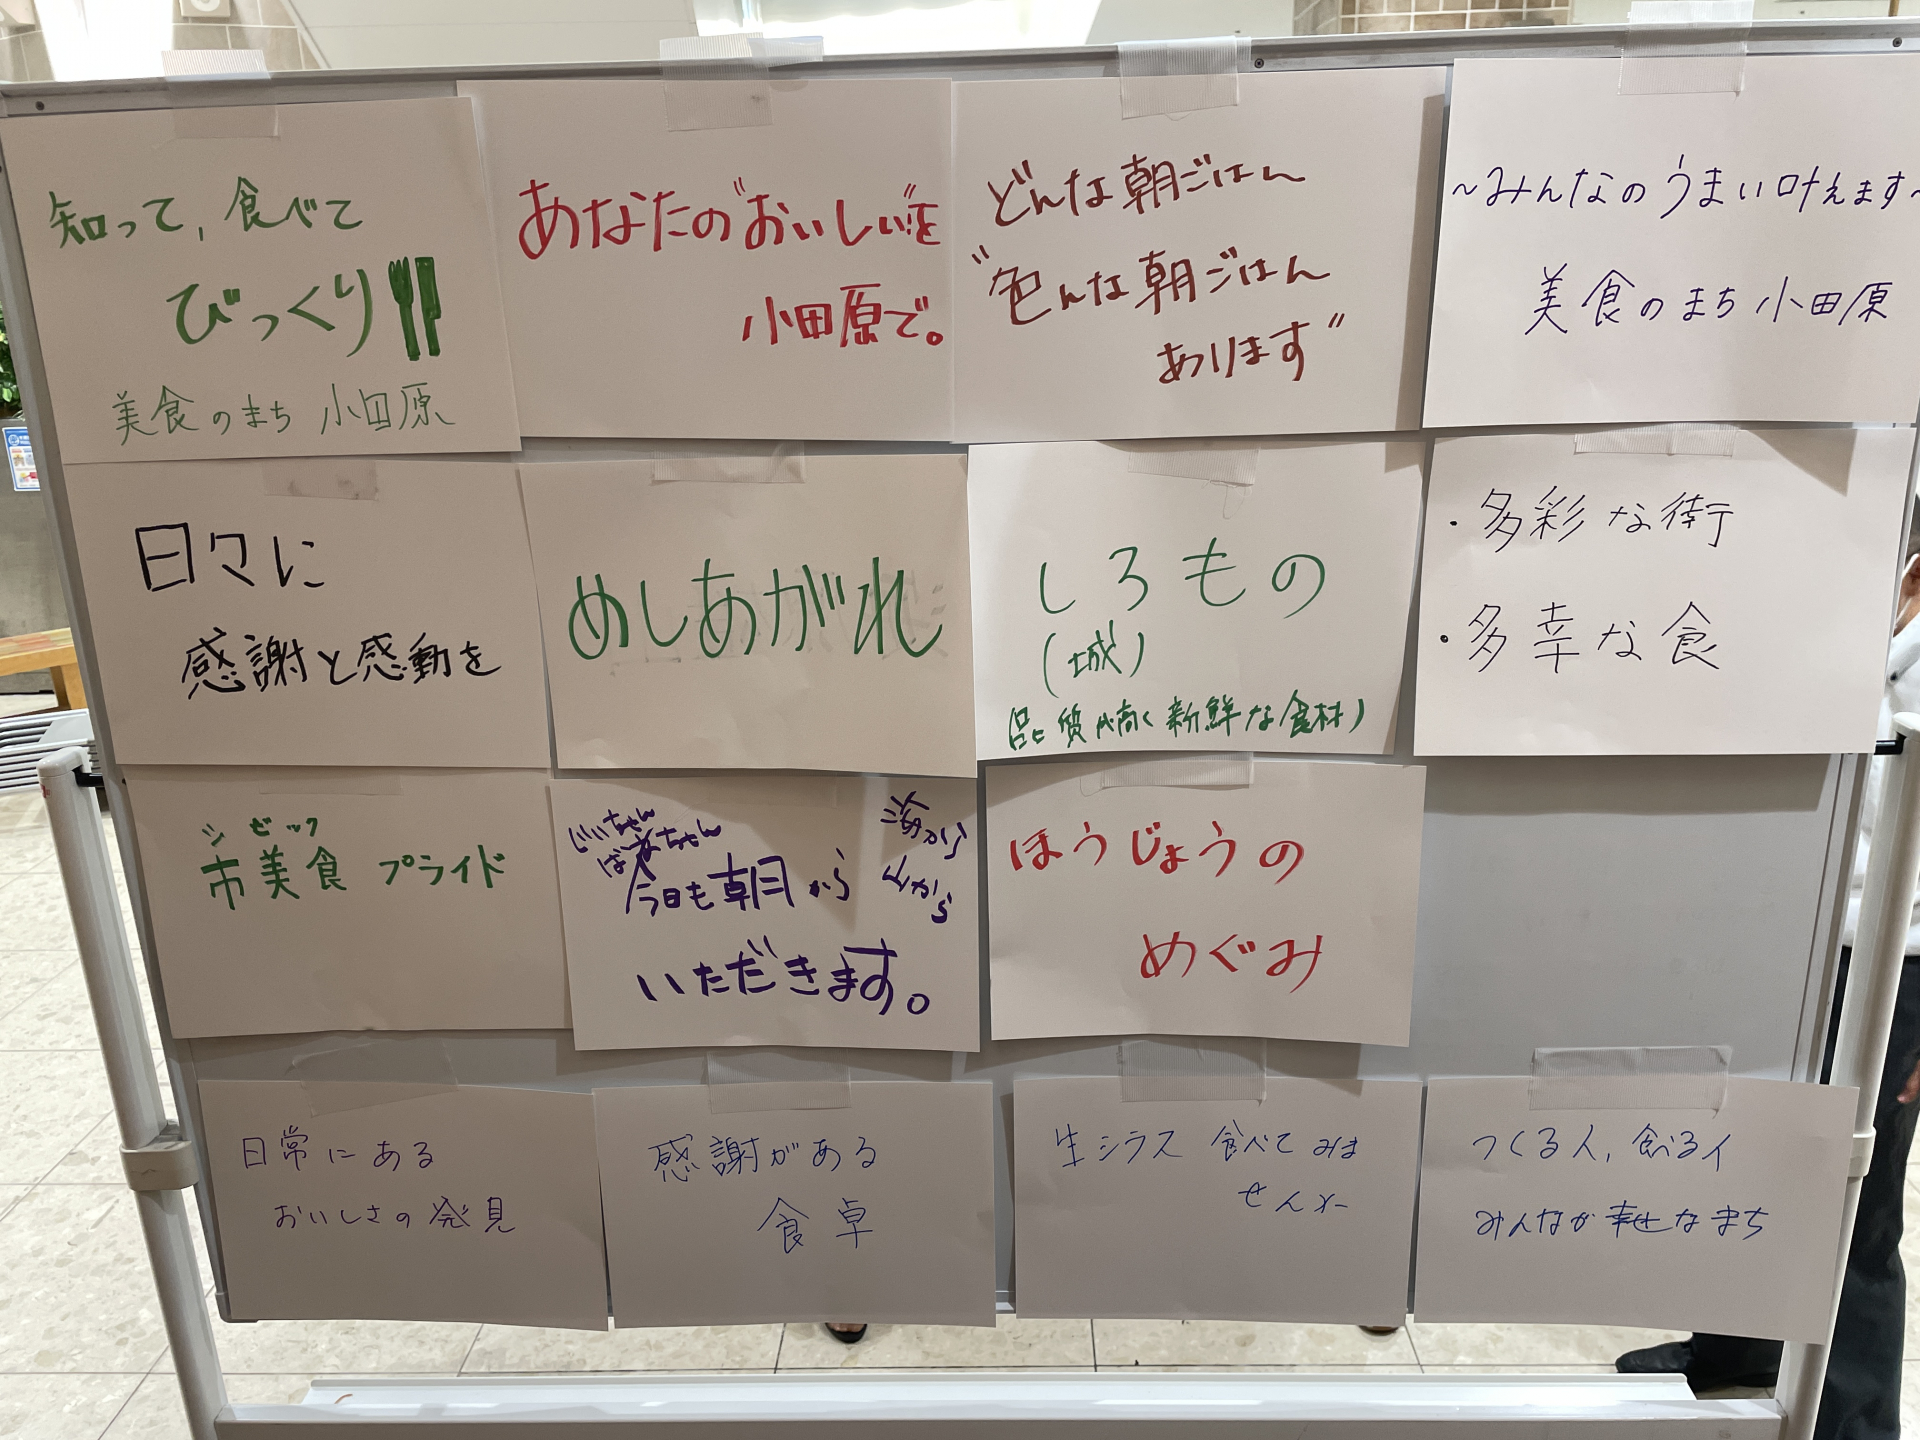 知って, 食べて
びっくり
美食のまち 小田原
あなたの"おいしい"を
小田原で。
どんな朝ごはん
"色んな朝ごはん
あります"
~みんなのうまい叶えます~
美食のまち小田原
日々に
感謝と感動を
めしあがれ
しろもの
(城)
品質が高く新鮮な食材)
・多彩な街
・多幸な食
シ ビ ック
市美食 プライド
じいちゃん
ばあちゃん
海から
山から
今日も朝から
いただきます。
ほうじょうの
めぐみ
日常にある
おいしさの発見
感謝がある
食卓
生シラス 食べてみま
せんか
つくる人, 食べる人
みんなが幸せなまち